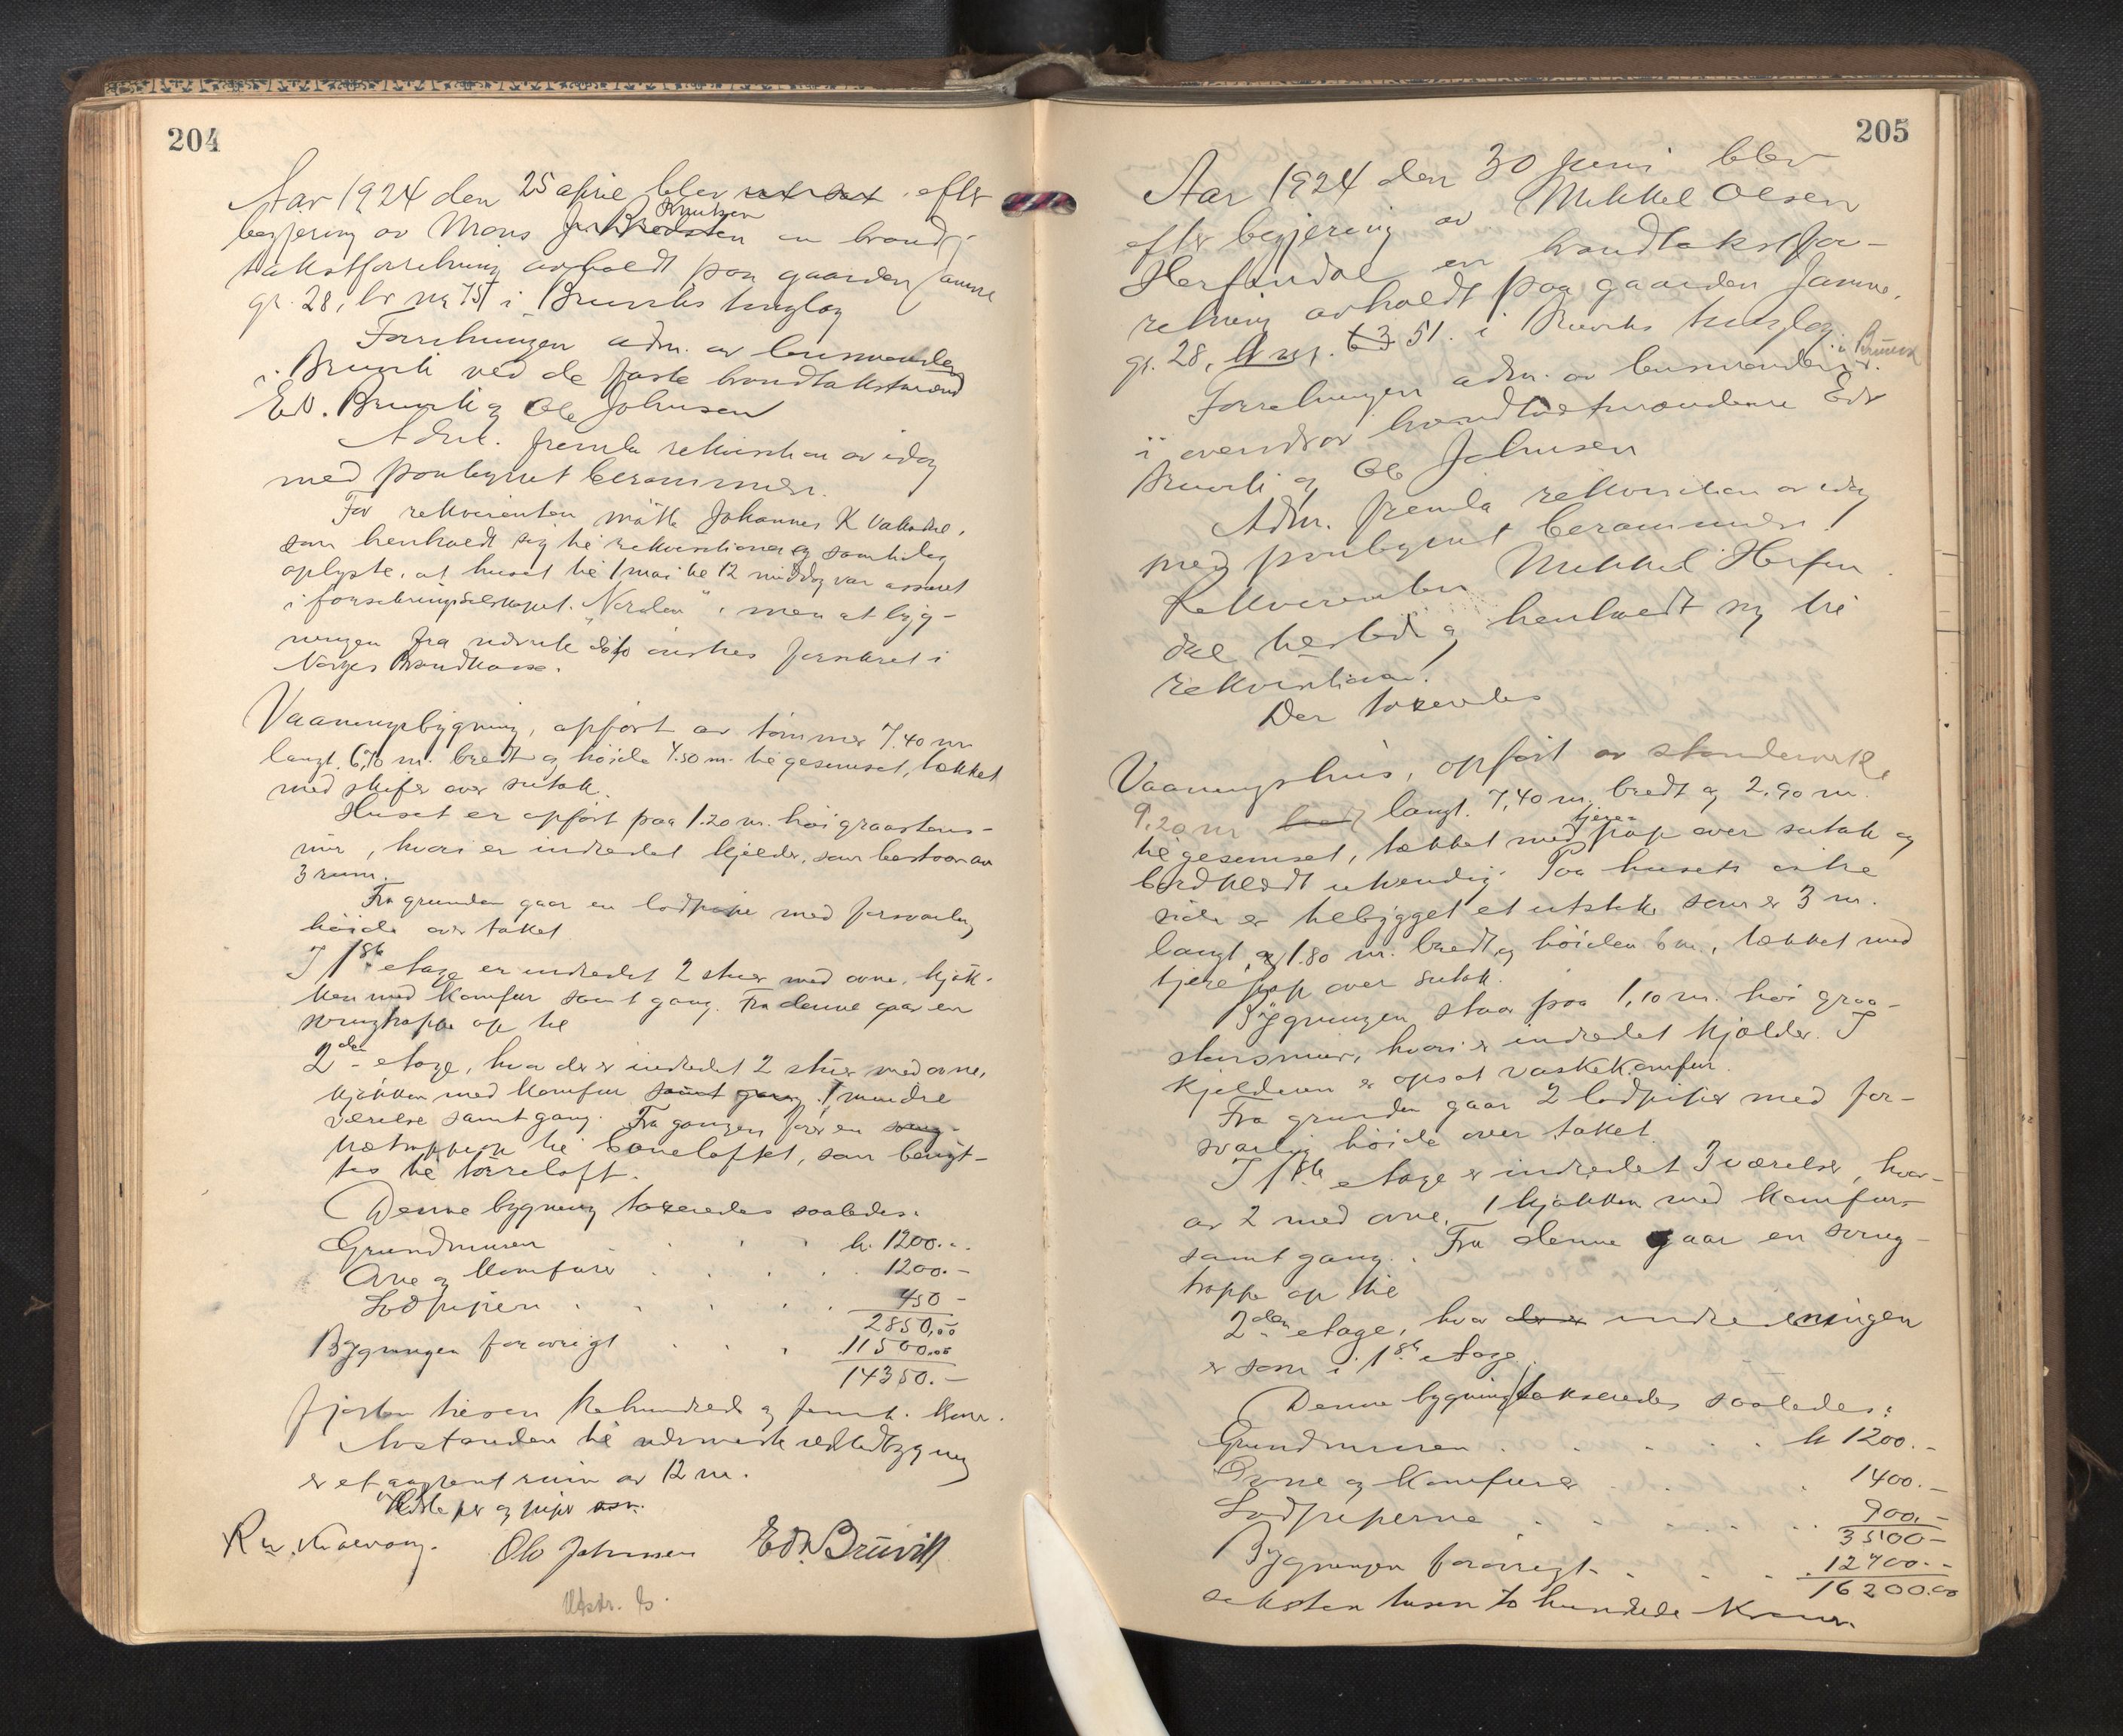 204
Aar 1924 den 25 april blev efter
begjæring av Mons Knutsen en brand-
takstforretning avholdt paa gaarden Jamne
gr. 28, br nr 75 i Bruviks tinglag
Forretningen adm. av lensmanden
i Bruvik ved de faste brandtakstmænd
Ed. Bruvik og Ole Johnsen
Adm. fremla rekvisition av idag
med paategnet berammelse.
For rekvirenten møtte Johannes K
som henholdt sig til rekvisitionen og samtidig
oplyste, at huset til 1 mai kl 12 middag var assuret
i forsikringsselskapet "Norden", men at byg-
ningen fra nævnte dato ønskes forsikret i
Norges Brandkasse.
Vaaningsbygning, opført av tømmer 7.40 m
langt, 6,70 m. bredt og høide 4.50 m. til gesemset, tækket
med skifer over sutak.
Huset er opført paa 1.20 m. høi graastens-
mur, hvori er indredet kjelder, som bestaar av
3 rum.
Fra grunden gaar en lodpipe med forsvarlig
høide over taket
I 1ste etage er indredet 2 stuer med ovne, kjøk-
ken med komfur samt gang. Fra denne gaar en
svingtrappe op til
2den etage, hvor der er indredet 2 stuer med ovne,
kjøkken med komfur samt gang, 1 mindre
værelse samt gang. Fra gangen fører en sving-
trætrappe op til baneloftet, som benyt-
tes til tørreloft.
Denne bygning taxeredes saaledes:
Grundmuren kr. 1200.-
Ovne og komfurer 1200.-
Lodpipen 450 -
2850,00
Bygningen forøvrigt 11500.00
14350.-
fjorten tusen trehundrede og femti kroner.
Avstanden til nærmeste vedkebygning
er et aapent rum av 12 m.
og piper
Ole Johnsen Edv. Bruvik
Utstr. B.
205
Aar 1924 den 30 juni blev
efter begjæring av Mikkel Olsen
Herfindal en brandtakstfor-
retning avholdt paa gaarden Jamne,
gr. 28, br nr. 63 51. i Bruviks tinglag.
Forretningen adm. av lensmanden i Bruvik
i overvær av brandtakstmændene Edv
Bruvik og Ole Johnsen
Adm. fremla rekvisition av idag
med paategnet berammelse.
Rekvirenten Mikkel Herfin-
dal tilstede og henholdt sig til
rekvisitionen.
Der taxeredes
Vaaningshus, opført av stenderverk,
9,20 m langt, 7,40 m. bredt og 2,90 m.
til gesemset, tækket med tjærepap over sutak og
bordklædt utvendig. Paa husets østre
side er tilbygget et utstik som er 3 m.
langt og 1.80 m. bredt og høiden 6 m., tækket med
tjærepap over sutak.
Bygningen staar paa 1,10 m. høi graa-
stensmur, hvori er indredet kjelder. I
kjelderen er opsat vaskekomfur.
Fra grunden gaar 2 lodpiper med for-
svarlig høide over taket.
I 1ste etage er indredet 3 værelser, hvor-
av 2 med ovne, 1 kjøkken med komfur
samt gang. Fra denne gaar en sving-
trappe op til
2den etage, hvor der er indredningen
er som i 1ste etage.
Denne bygning takseredes saaledes:
Grundmuren kr 1200.-
Ovne og komfurer 1400.-
Lodpiperne 900.-
3500-
Bygningen forøvrigt 12700.-
16200.00
seksten tusen to hundrede Kroner